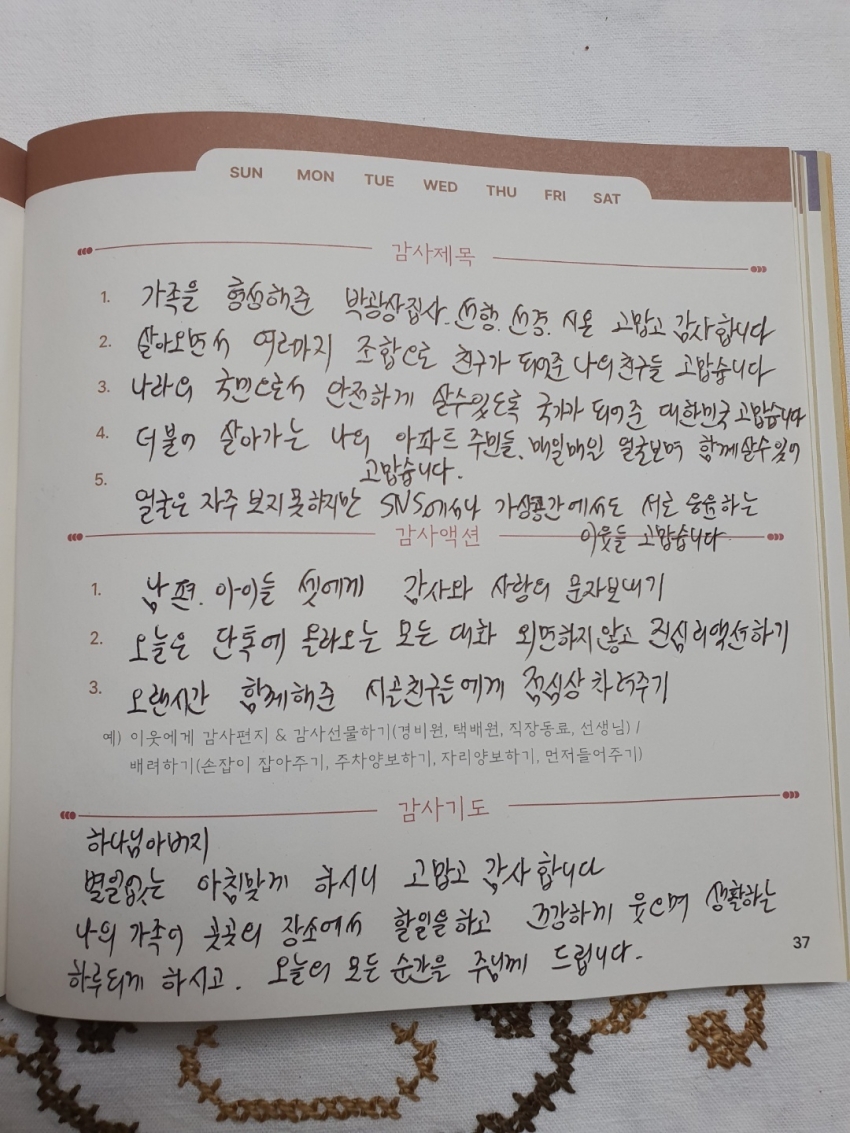 SUN MON TUE WED THU FRI SAT
감사제목
1. 가족을 형성해준 박광상집사. 선행. 선경. 시온 고맙고 감사합니다
2. 살아오면서 여러마지 조합으로 친구가 되어준 나의 친구들 고맙습니다
3. 나라의 국민으로서 안전하게 살수있도록 국가가 되어준 대한민국 고맙습니다
4. 더불어 살아가는 나의 아파트 주민들. 매일매일 얼굴보며 함께살수있어
고맙습니다.
5. 얼굴은 자주 보지 못하지만 SNS에서나 가상공간에서도 서로 응원하는
이웃들 고맙습니다.
감사액션
1. 남편. 아이들 셋에게 감사와 사랑의 문자보내기
2. 오늘은 단톡에 올라오는 모든 대화 외면하지 않고 진심 리액션하기
3. 오랜시간 함께해준 시골친구들에게 점심상 차려주기
예) 이웃에게 감사편지 & 감사선물하기(경비원, 택배원, 직장동료, 선생님) /
배려하기(손잡이 잡아주기, 주차양보하기, 자리양보하기, 먼저들어주기)
감사기도
하나님아버지
별일없는 아침맞게 하시니 고맙고 감사합니다
나의 가족이 곳곳의 장소에서 할일을하고 건강하게 웃으며 생활하는
하루되게 하시고. 오늘의 모든 순간을 주님께 드립니다.
37